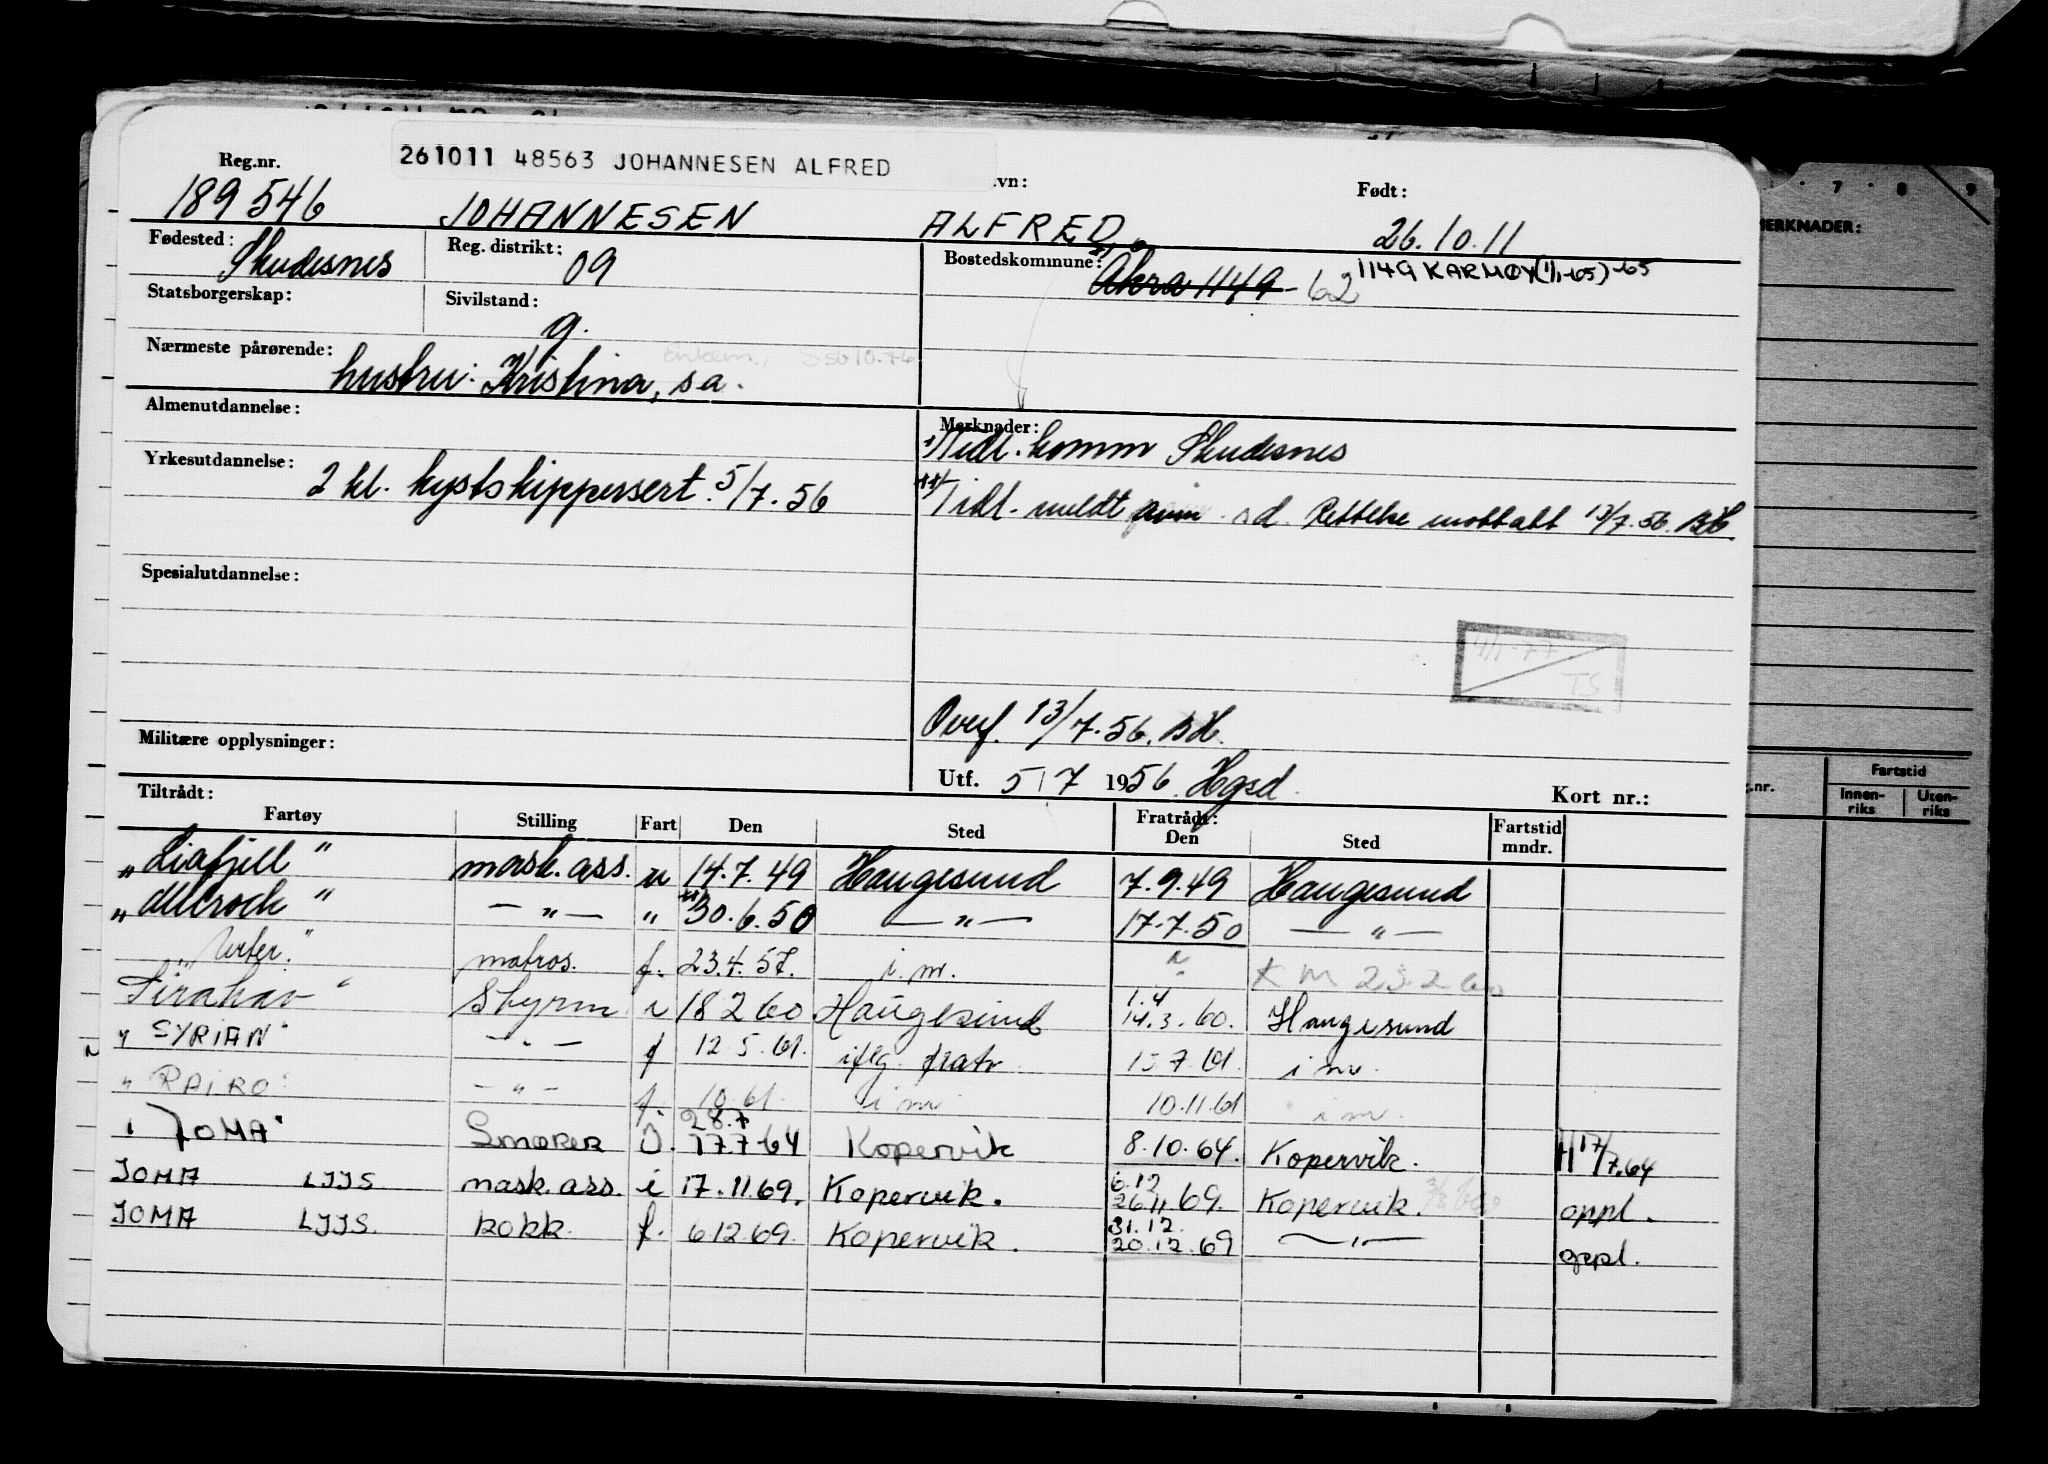 261011 48563 JOHANNESEN ALFRED
Reg.nr. .vn: Født:
189546 JOHANNESEN ALFRED 26.10.11
Fødested: Skudesnes Reg. distrikt: 09 Bostedskommune: Åkra 1149 - 62 1149 KARMØY (1/1-65) -65
Statsborgerskap: Sivilstand: g.
Nærmeste pårørende: hustru: Kristina, sa.
Almenutdannelse: Merknader:
Tidl. komm Skudesnes
Yrkesutdannelse: 2 kl. kystskippersert. 5/7.56
Tidl. meldt Rettelse mottatt 13/7.56. BH.
Spesialutdannelse:
4/1-77
TS
Overf. 13/7.56. BH.
Militære opplysninger:
Utf. 5/7 1956 Hgsd. Kort nr.:
Tiltrådt: Fratrådt:
Fartøy Stilling Fart Den Sted Den Sted Fartstid mndr.
"Liafjell" mask. ass. u 14.7.49 Haugesund 7.9.49 Haugesund
" " — " — " 30.6.50 — " — 17.7.50 — " —
"Urter." matros. f. 23.4.57. i.m. KM 23.2.60
Sirahav" Styrm i 18 2 60 Haugesund 1.4 14.3.60. Haugesund
"SYRIAN" — " — f 12.5.61. iflg. fratr 7.61. i m.
"RAIRO" — " — f. 10.61. i m 10.11.61 i m.
"JOMA" Smører I. 28.7 17.7-64 Kopervik 8.10.64. Kopervik. 17/7.64
JOMA LJJS mask. ass. i 17.11.69. Kopervik. 6.12 26.11.69. Kopervik. oppl.
JOMA LJJS. kokk. f. 6.12.69. Kopervik. 31.12. 20.12.69 — " — oppl.
MERKNADER:
7 8 9
.nr. Fartstid
Innen-riks Uten-riks